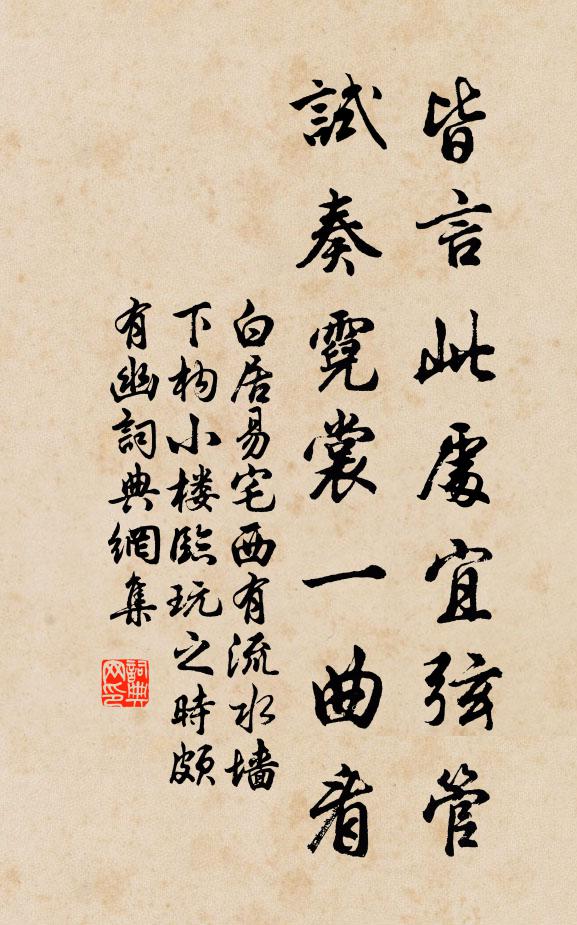 皆言此處宜弦管
試奏霓裳一曲看
白居易宅西有流水墙
下构小楼臨玩之時颇
有幽詞典網集
詞典网印